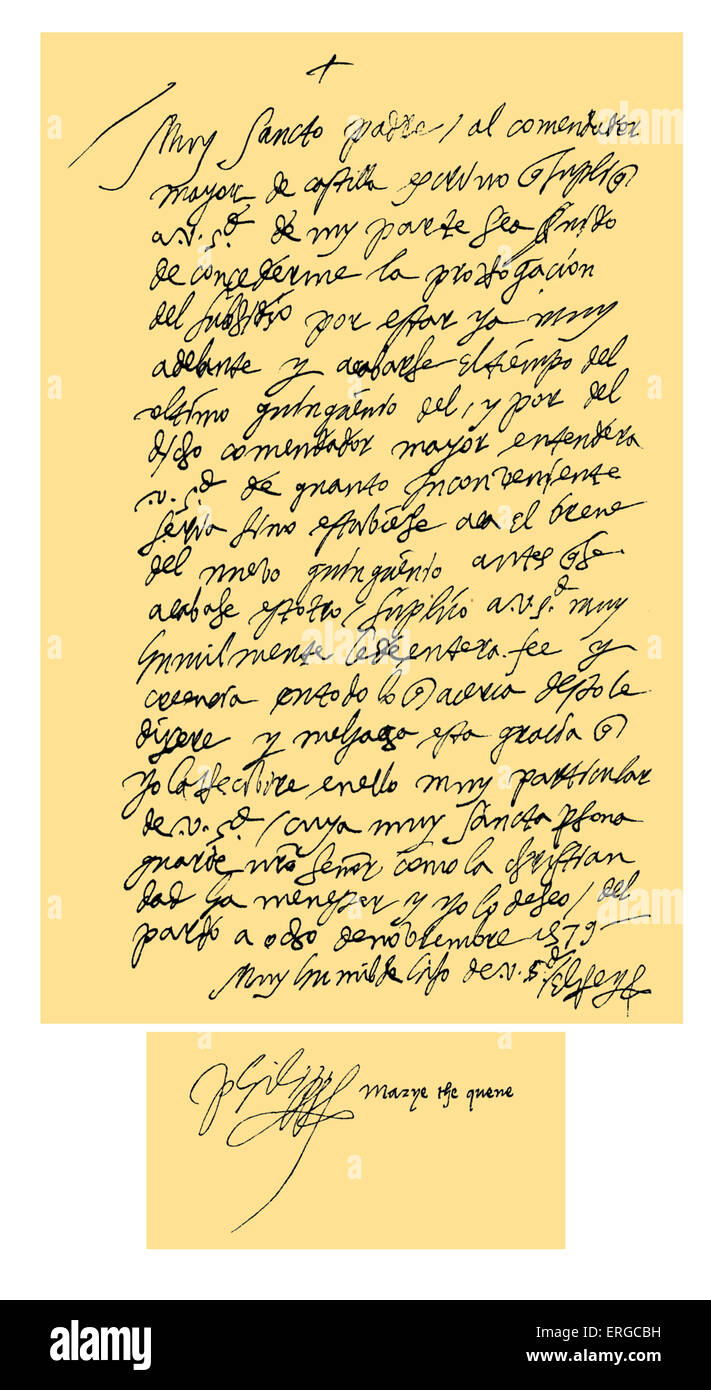 +
Muy Sancto padre / al comendador
mayor de castilla escrivo q supliq
a.v.s.d de my parte sea
de concederme la prorrogacion
del subsidio por estar ya muy
adelante y acabarse el tiempo del
ultimo quinquenio del, y por del
dicho comendador mayor entendera
.v.s.d de quanto inconveniente
seria sino estubiese aca el breve
del nuevo quinquenio antes q se
acabase estotro / suplico a.v.s.d muy
humilmente le de entera fee y
creencia en todo lo q acerca desto le
dixere y me haga esta gracia q
yo la rrecibire en ello muy particular
de.v.s.d / cuya muy sancta psona
guarde nro señor como la christian
dad ha menester y yo lo deseo / del
pardo a ocho de noviembre 1579
Muy humilde hijo de.v.s.d / El Rey
Philipp Marye the quene
alamy
Image ID: ERGCBH
www.alamy.com